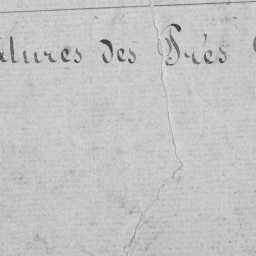 atures des Prés